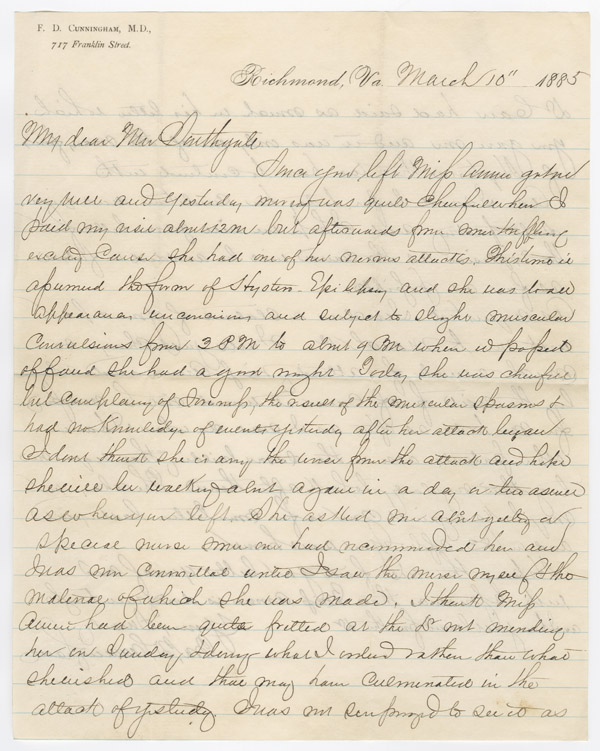 F. D. CUNNINGHAM, M.D.,
717 Franklin Street.
Richmond, Va. March 10" 1885
My dear Mrs
Since you left Miss Annie got on
very nice and yesterday morning was quite cheerful when I
paid my visit about 12 M but afterwards from some trifling
exciting cause she had one of her nervous attacks. This time it
assumed the form of Hystero-Epilepsy and she was to all
appearances unconscious and subject to slight muscular
convulsions from 3 PM to about 9 PM when it passed
off and she had a good night Today she was cheerful
but complaining of soreness, the result of the muscular spasms &
had no knowledge of events yesterday after her attack began
I dont think she is any the worse from the attack and hope
she will be walking about again in a day or two as well
as when you left. She asked me about getting a
special nurse some one had recommended her and
I was non committal until I saw the nurse myself & the
material of which she was made. I think Miss
Annie had been quite fretted at the Dr not
her on Sunday, & doing what I ordered rather than what
she wished and that may have culminated in the
attack of yesterday. I was not surprised to see it as